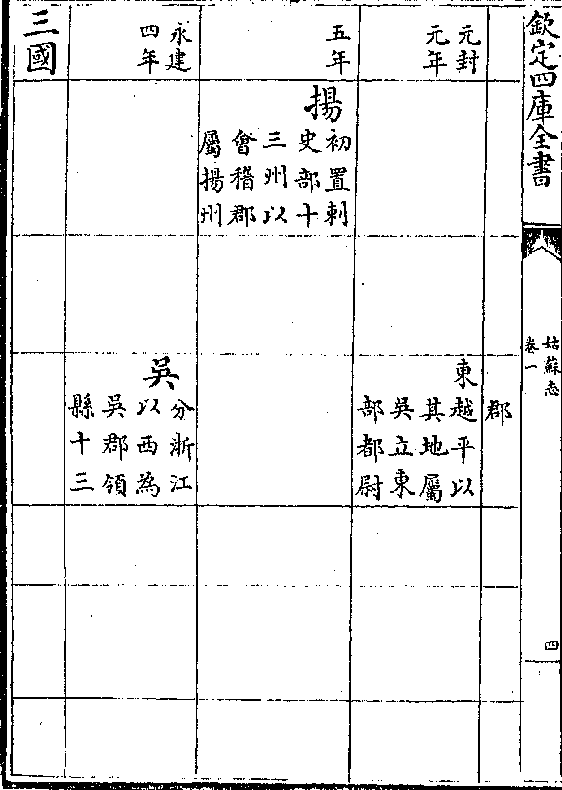 欽定四庫全書
姑蘇志
卷一
四
郡
元封
元年
東越平以
其地屬
吳立東
部都尉
五年
揚
初置刺
史部十
三州以
會稽郡
屬揚州
永建
四年
吳
分浙江
以西為
吳郡領
縣十三
三國